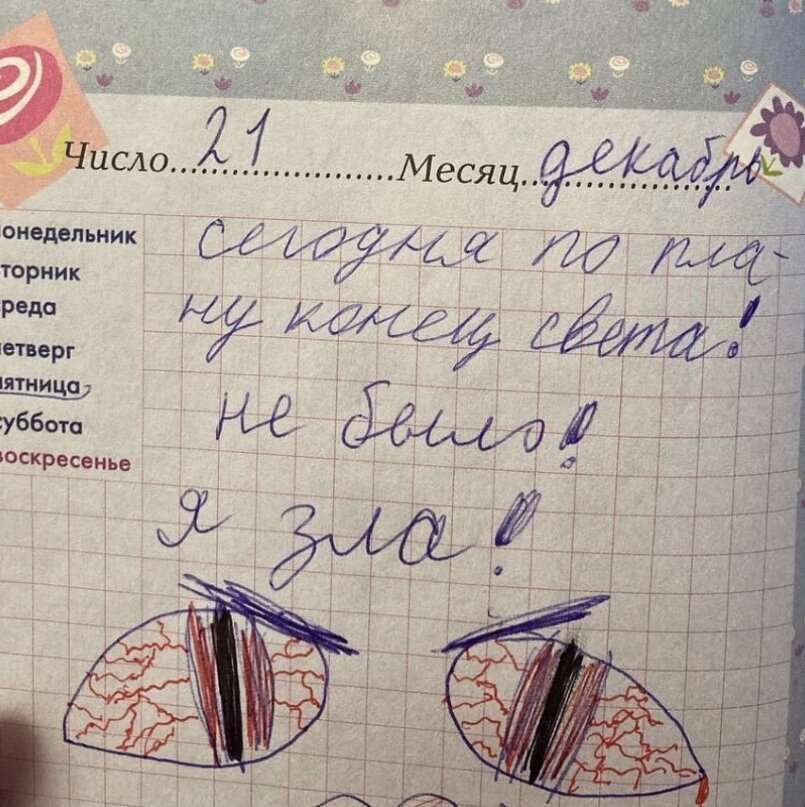 Число 21 Месяц декабрь
онедельник
торник
реда
етверг
ятница
уббота
воскресенье
сегодня по пла-
ну конец света!
не было!
я зла!